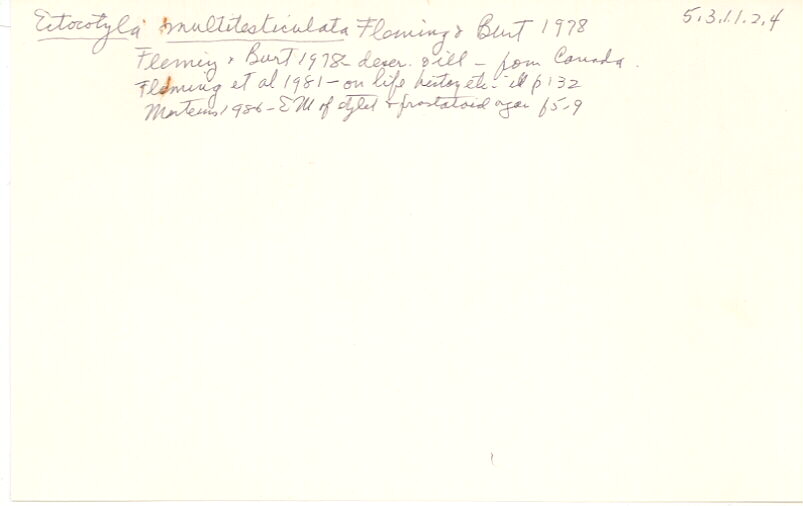 Ectocotyla multitesticulata Fleming & Burt 1978 5.3.1.1.2.4
Fleming & Burt 1978 descr. & ill - from Canada.
Fleming et al 1981 - on life history etc. - ill p132
Martens 1986 - EM of stylet & prostatoid organ f5-9